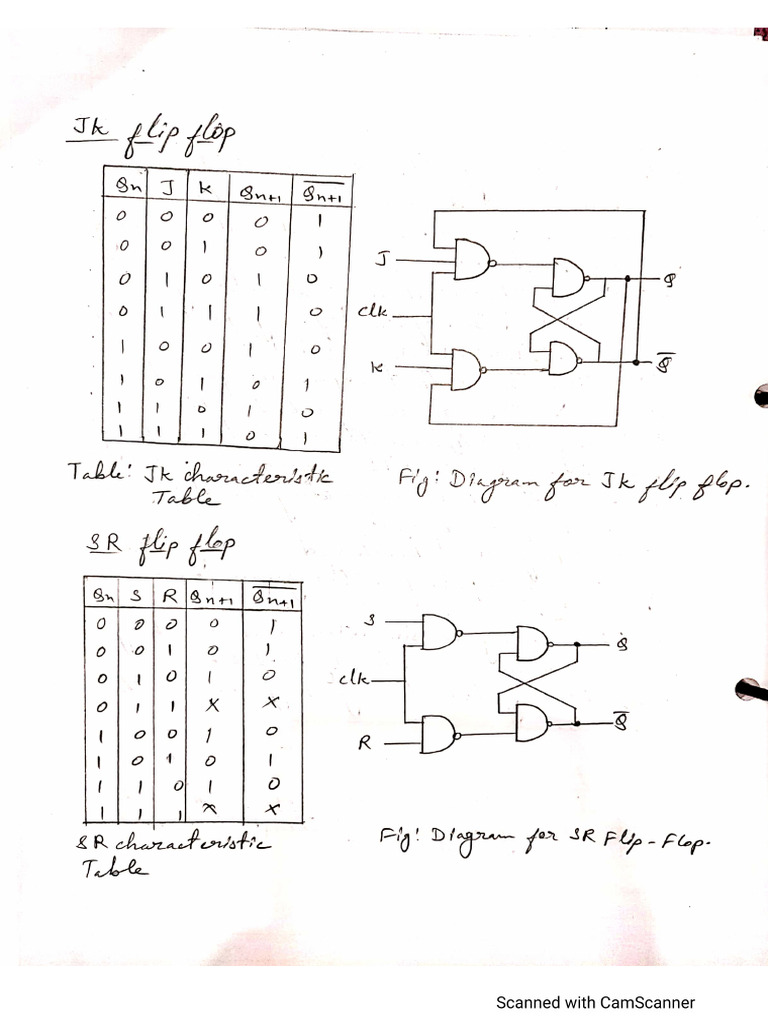 JK flip flop
Qn J K Qn+1 Qn+1
0 0 0 0 1
0 0 1 0 1
0 1 0 1 0
0 1 1 1 0
1 0 0 1 0
1 0 1 0 1
1 1 0 1 0
1 1 1 0 1
Table: JK characteristic
Table
J
clk
K
Q
Q̅
Fig: Diagram for JK flip flop.
SR flip flop
Qn S R Qn+1 Qn+1
0 0 0 0 1
0 0 1 0 1
0 1 0 1 0
0 1 1 x x
1 0 0 1 0
1 0 1 0 1
1 1 0 1 0
1 1 1 x x
SR characteristic
Table
S
clk
R
Q
Q̅
Fig: Diagram for SR Flip-Flop.
Scanned with CamScanner